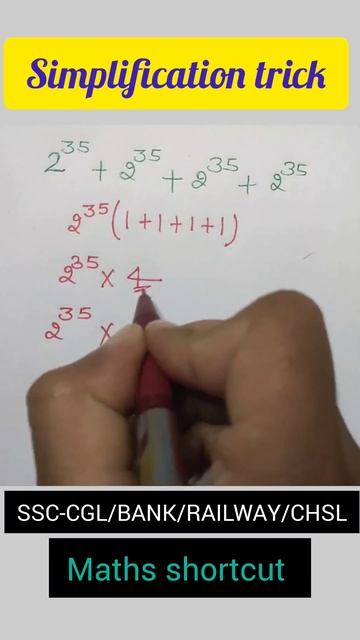 Simplification trick
2³⁵ + 2³⁵ + 2³⁵ + 2³⁵
2³⁵ (1+1+1+1)
2³⁵ × 4
2³⁵ ×
SSC-CGL/BANK/RAILWAY/CHSL
Maths shortcut